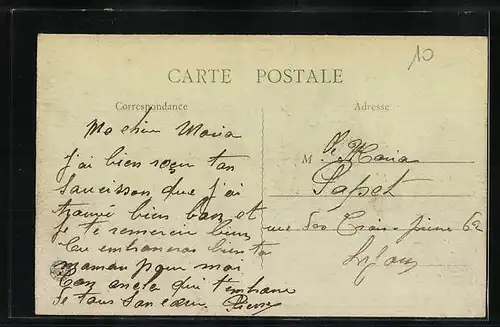 10
CARTE POSTALE
Correspondance
Adresse
Maria
j'ai bien reçu ton
saucisson que j'ai
trouvé bien bon et
je te remercie bien
Tu embrasseras bien ta
maman pour moi
Ton oncle qui t'embrasse
de tous son cœur Pierre
M Maria
Sapet
rue des Trois 62